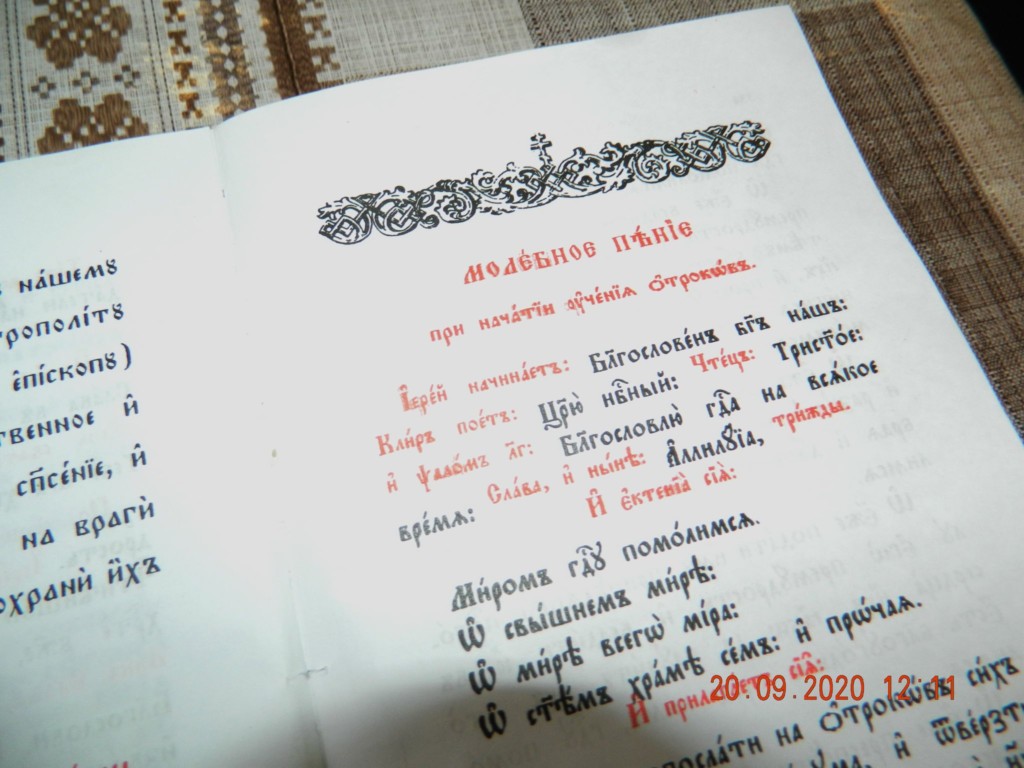 нáшемꙋ
трополíтꙋ
є҆пíскопꙋ)
твенное и҆̀
сп҃се́нїе, и҆̀
на врагѝ
охранѝ и҆̀хъ
МОЛЕ́БНОЕ ПѢ́НІЕ
при начáтїи ᲂу҆че́нїѧ ѻ҆́трокѡвъ.
І҆ере́й начинáетъ: Бл҃гослове́нъ бг҃ъ нáшъ:
Кли́ръ пое́тъ: Цр҃ю̀ нбⷭ҇ный: Чте́цъ: Трист҃о́е:
и҆ ѱало́мъ л҃г: Бл҃гословлю̀ гдⷭ҇а на всѧ́кое
вре́мѧ: Слáва, и҆ ны́нѣ: А҆ллилꙋ́їа, три́жды.
И҆ є҆ктенїа̀ сїѧ̀:
Ми́ромъ гдⷭ҇ꙋ помо́лимсѧ.
Ѡ҆ свы́шнемъ ми́рѣ:
Ѡ҆ ми́рѣ всегѡ̀ мíра:
Ѡ҆ ст҃ѣ́мъ хрáмѣ се́мъ: и҆ прѡ́чаѧ.
И҆ прилагáетъ сїѧ̑:
послáти на ѻ҆́трокѡвъ си́хъ
и҆ ѿве́рзт
20.09.2020 12:11